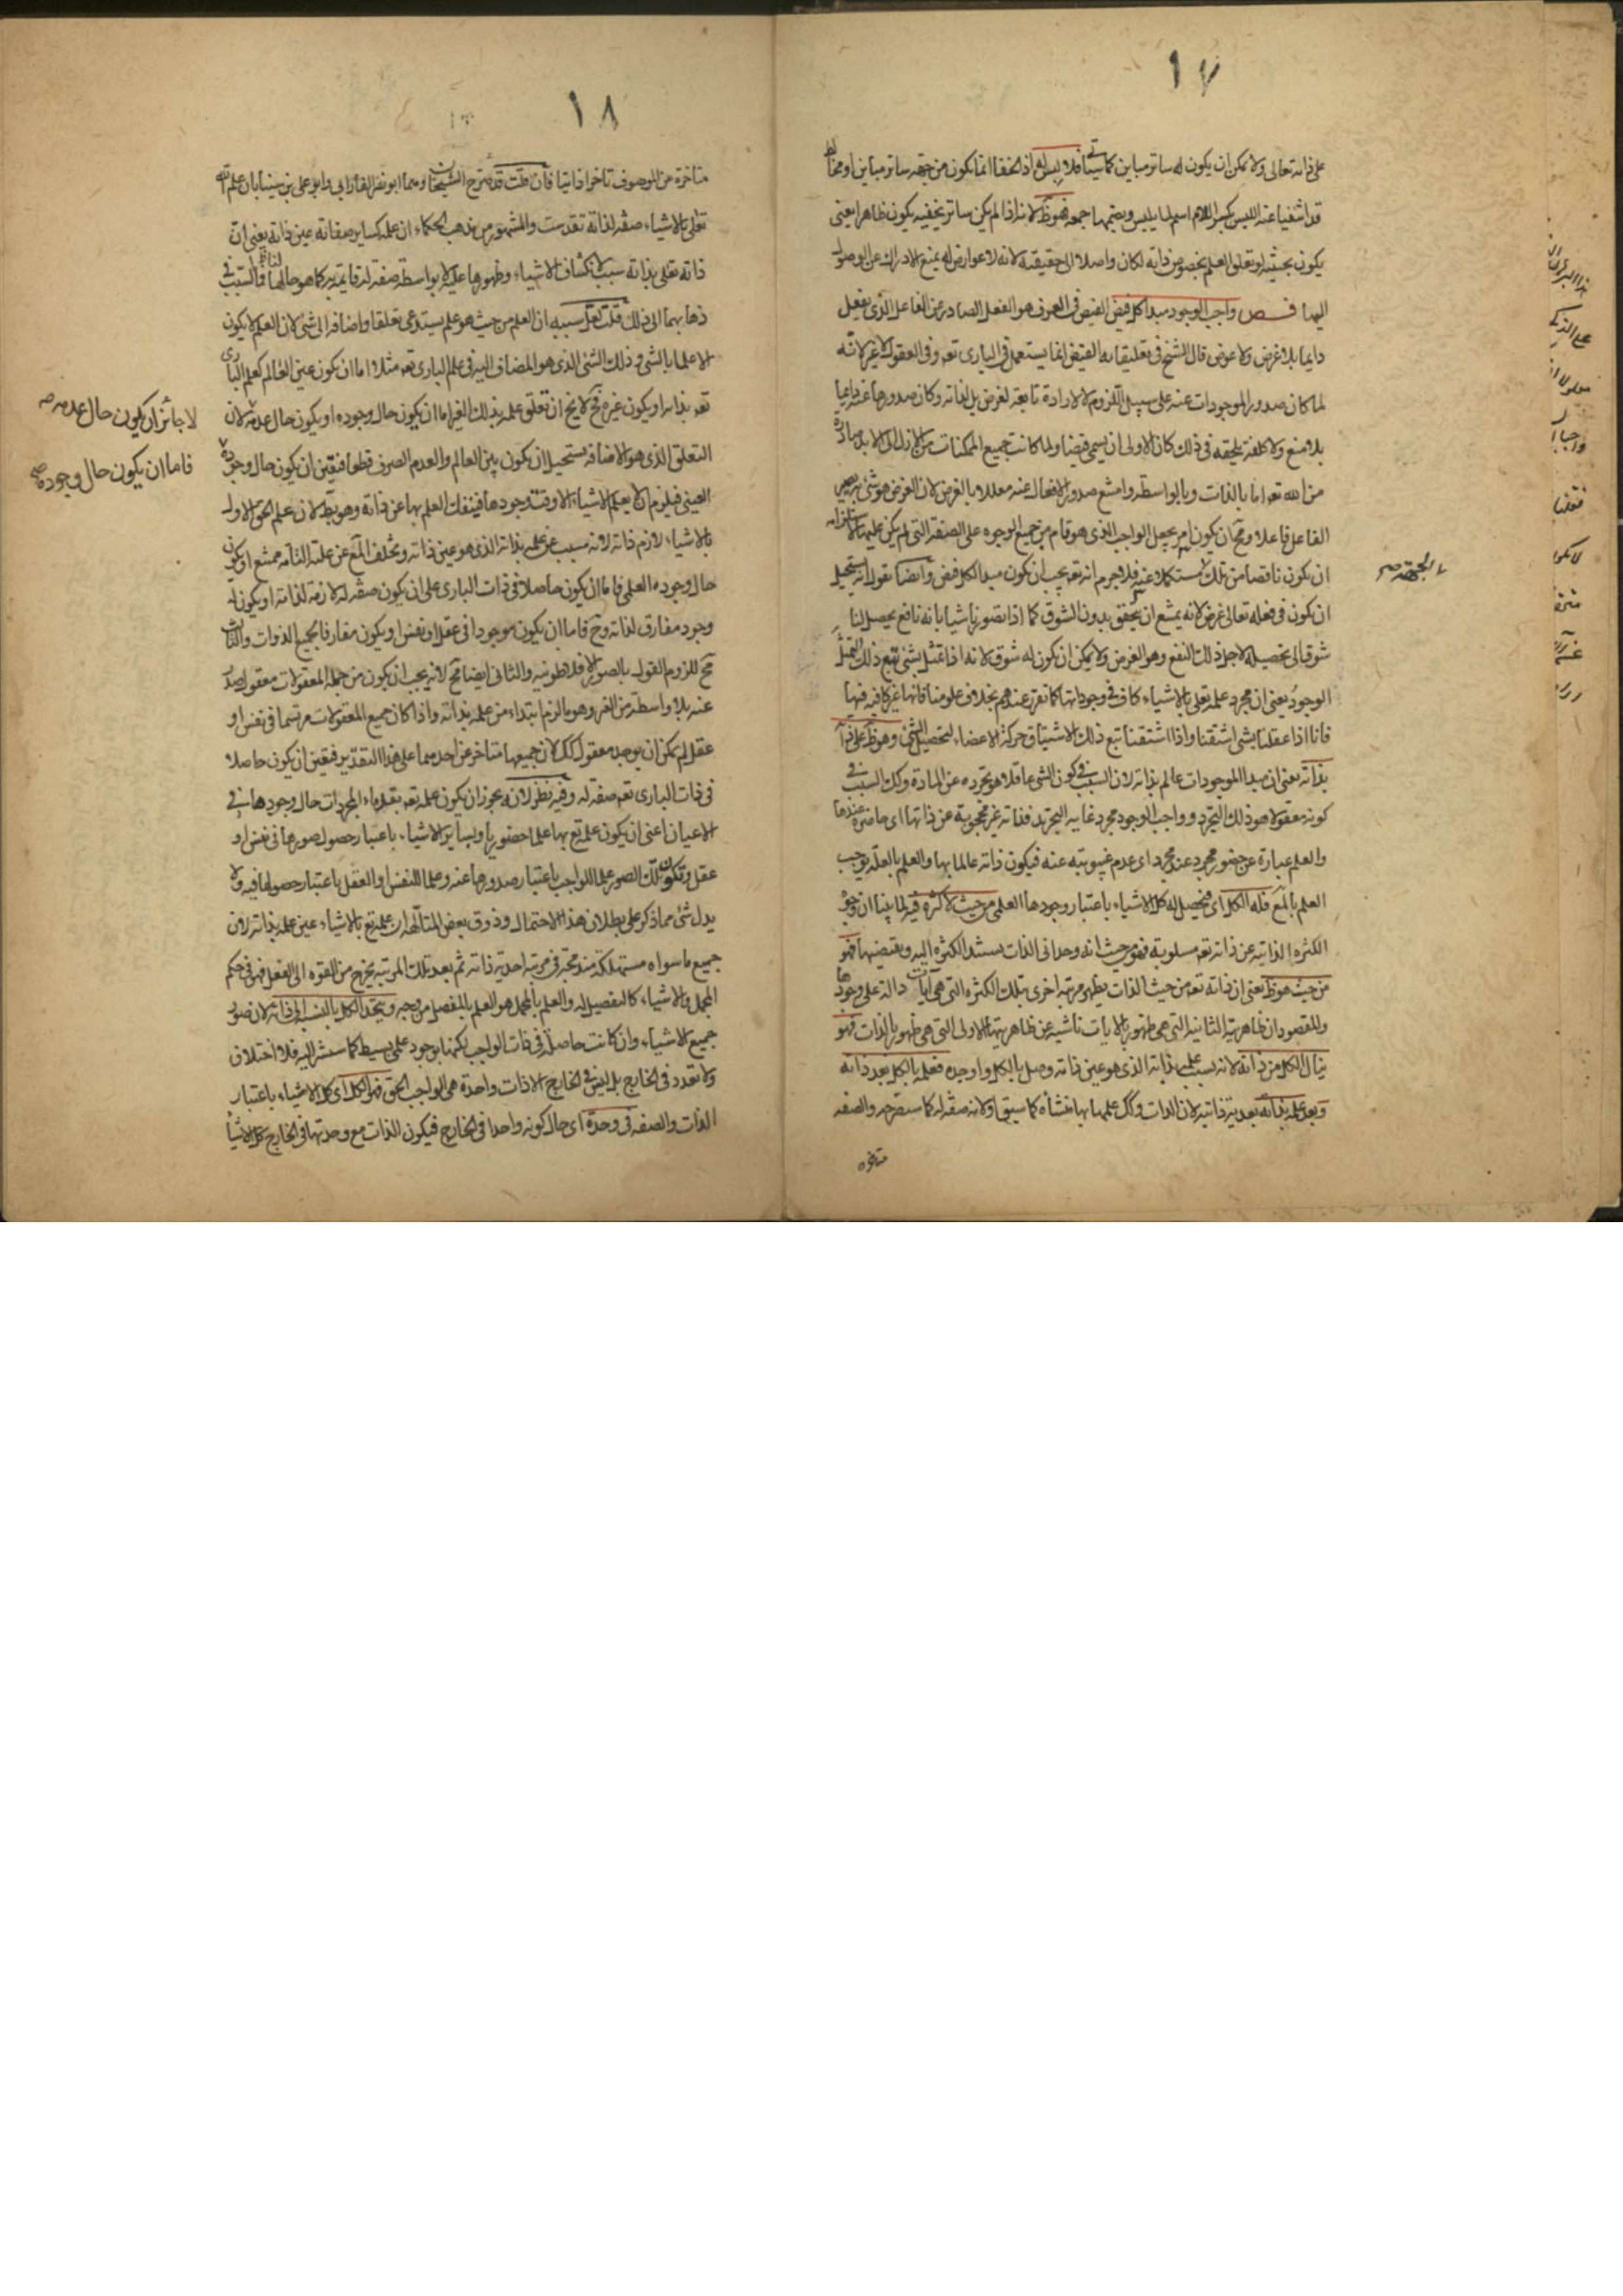 ١٧
على ذاته تعالى ولا يمكن ان يكون له ساتر مباين كما سيأتي فلا لبس له اذ الخفا انما يكون من جهة ساتر مباين او مخالط
قد انتفيا عنه اللبس بكسر اللام اسم لما يلبس ويضمها جمعه فهو ظ لانه اذا لم يكن ساتر يخفيه يكون ظاهرا يعنى
يكون بحيث لو تعلق العلم بخصوص ذاته لكان واصلا الى حقيقته لانه لا عوارض له يمنع الادراك عن الوصول
اليها فص واجب الوجود مبدا كل فيض الفيض فى العرف هو الفعل الصادر عن الفاعل الذى يفعل
دايما بلا غرض ولا عوض قال الشيخ فى تعليقاته الفيض انما يستعمل فى البارى تعه وفى العقول لا غير لانه
لما كان صدور الموجودات عنه على سبيل اللزوم لا لارادة تابعة لغرض بل لذاته وكان صدورها عنه دايما
بلا منع ولا كلفة يلحقه فى ذلك كان الاولى ان يسمى فيضا ولما كانت جميع الممكنات من الازل الى الابد صادرة
من الله تعه اما بالذات و بالواسطه وامتنع صدور الافعال عنه معللا بالغرض لان الغرض هو شئ به يصير
الفاعل فاعلا ومح ان يكون امر يجعل الواجب الذى هو تام من جميع الوجوه على الصفة التى لم يكن عليها لاستلزامه
ان يكون ناقصا من تلك مستكملا عنه فلا جرم انه تعه يجب ان يكون مبدا لكل فيض وايضا نقول انه يستحيل
الجهة صح
ان يكون فى فعله تعالى غرض لانه يمتنع ان يتحقق بدون الشوق كما اذا تصورنا شيا بانه نافع يحصل لنا
شوق الى تحصيله لاجل ذلك النفع وهو الغرض ولا يمكن ان يكون له شوق لانه اذا تمثل بشئ تبع ذلك التمثل
الوجود يعنى ان مجرد علمه تعلى بالاشياء كاف فى وجوداتها كما تقرر عندهم بخلاف علومنا فانها غير كافيه فيها
فانا اذا عقلنا بشى اشتقنا واذا اشتقنا تبع ذلك الاشتياق حركة الاعضاء لتحصيل الشئ وهو ظ على ذاته
بذاته يعنى ان مبدا الموجودات عالم بذاته لان السبب فى كون الشى عاقلا هو تجرده عن المادة وكك السبب فى
كونه معقولا هو ذلك التجرد وواجب الوجود مجرد غايه التجرد فذاته غير محجوبة عن ذاتها اى حاضره عندها
والعلم عبارة عن حضور مجرد عند مجرد اى عدم غيبوبته عنه فيكون ذاته عالما بها والعلم بالعلة يوجب
العلم بالمع فله الكل اى فيحصل له كل الاشياء باعتبار وجودها العلمى من حيث لا كثرة فيه لما بينا ان وجود
الكثره الذاتيه عن ذاته تعه مسلوبة فهو من حيث انه وحدانى الذات يستند الكثره اليه ويقتضيها فهو
من حيث هو ظ يعنى ان ذاته تعه من حيث الذات يظهر مرتبه اخرى بتلك الكثره التى هى آيات دالة على وجوده
والمقصود ان ظاهريته الثانيه التى هى ظهور بالايات ناشيه عن ظاهريتها الاولى التى هى ظهور بالذات فهو
ينال الكل من ذاته لانه بسبب علمه بذاته الذى هو عين ذاته وصل بالكل واوجده فعلمه بالكل بعد ذاته
وبعد علمه بذاته بعدية ذاتيه لان الذات وكك علمها بها منشأه كما سبق ولانه صفة له كما سنصرحه والصفه
متاخره
١٨
متاخرة عن الموصوف تاخرا ذاتيا فان قلت قد صرح الشيخان وهما ابو نصر الفارابى وابو على بن سينا بان علم الله
تعلى بالاشياء صفة لذاته تقدست والمشهور من مذهب الحكماء ان علمه كساير صفاته عين ذاته يعنى ان
ذاته تعلى بذاته سبب لانكشاف الاشياء وظهورها عليه لا بواسطة صفة له قايمة به كما هو حالنا فما السبب فى
ذهابهما الى ذلك قلت لعل سببه ان العلم من حيث هو علم يستدعى تعلقا واضافه الى شئ لان العلم لا يكون
الا علما بالشى وذلك الشى الذى هو المضاف اليه فى علم البارى تعه مثلا اما ان يكون عين العالم كعلم البارى
تعه بذاته او يكون غيره فح لا يخ ان تعلق علمه بذلك الغير اما ان يكون حال وجوده او يكون حال عدمه لان
لا جائز ان يكون حال عدمه صح
التعلق الذى هو الاضافه يستحيل ان يكون بين العالم والعدم الصرف قطعا فتعين ان يكون حال وجوده
فاما ان يكون حال وجوده صح
العينى فيلزم ان لا يعلم الاشياء الا وقت وجودها فينفك العلم بها عن ذاته وهو بط لان علم الحق الاول
بالاشياء لازم ذاته لانه مسبب عن علمه بذاته الذى هو عين ذاته وتخلف المع عن علته التامه ممتنع او يكون
حال وجوده العلمى فاما ان يكون حاصلا فى ذات البارى على ان يكون صفة له لازمة لذاته او يكون له
وجود مفارق لذاته وح فاما ان يكون موجودا فى عقل او نفس او يكون مفارقا لجميع الذوات والثالث
مح للزوم القول بالصور الافلاطونيه والثانى ايضا مح لانه يجب ان يكون من جمله المعقولات معقول صدر
عنه بلا واسطة من الغير وهو ما لزم ابتداء من علمه بذاته واذا كان جميع المعقولات مرتسما فى نفس او
عقل لم يمكن ان يوجد معقول كك لان جميعها متاخر عن احدهما على هذا التقدير فتعين ان يكون حاصلا
فى ذات البارى تعه صفة له وفيه نظر لانه يجوز ان يكون علمه تعه بقدماء المجردات حال وجودها فى
الاعيان اعنى ان يكون علمه تع بها علما حضوريا وبساير الاشياء باعتبار حصول صورها فى نفس او
عقل وتكون تلك الصور علما للواجب باعتبار صدورها عنه وعلما للنفس او العقل باعتبار حصولها فيه ولا
يدل شئ مما ذكر على بطلان هذا الاحتمال وذوق بعض المتالهه ان علمه تع بالاشياء عين علمه بذاته لان
جميع ما سواه مستهلكة مندمجة فى مرتبه احدية ذاته ثم بعد تلك المرتبه يخرج من القوه الى الفعل فهو فى حكم
المجمل والاشياء كالتفصيل له والعلم بالمجمل هو العلم بالمفصل من وجه ويتحد الكل بالنسبه الى ذاته لان صور
جميع الاشياء وان كانت حاصلة فى ذات الواجب لكنها بوجود علمى بسيط كما سنشير اليه فلا اختلاف
ولا تعدد فى الخارج بل ليس فى الخارج الا ذات واحدة هى الواجب الحق فهو الكل اى كل الاشياء باعتبار
الذات والصفه فى وحدة اى حال كونه واحدا فى الخارج فيكون الذات مع وحدتها فى الخارج كل الاشيا